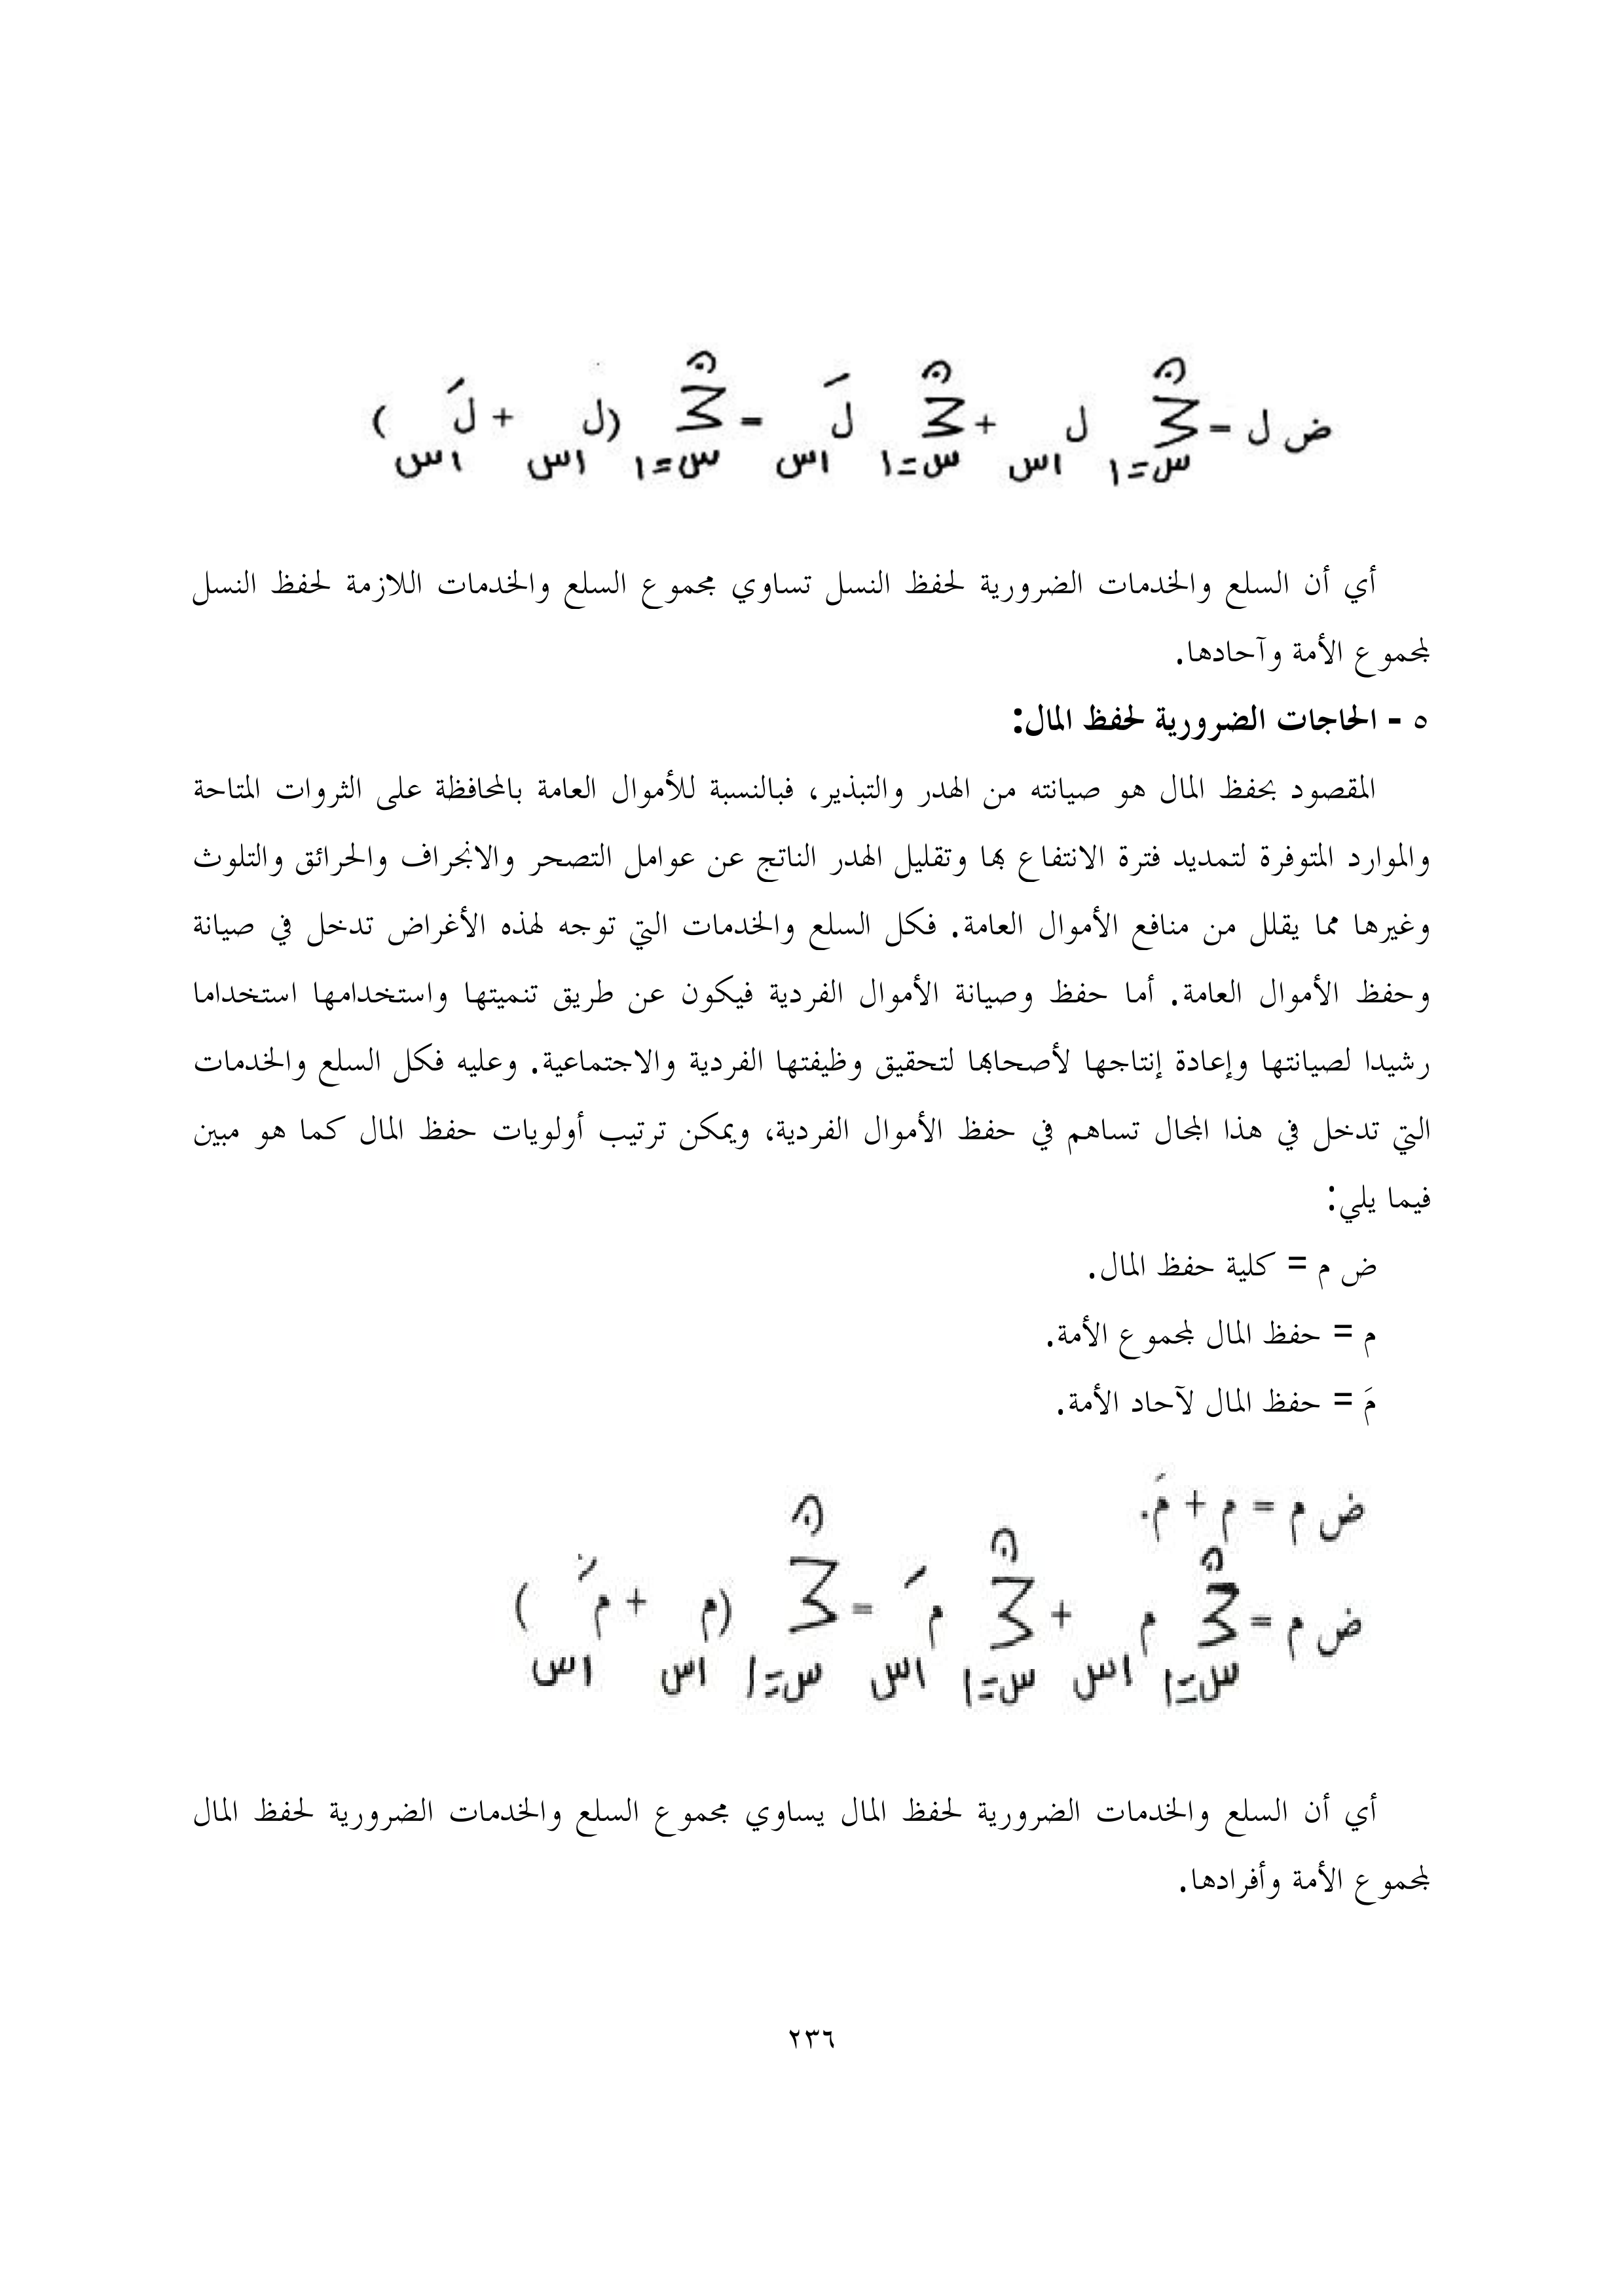 ض ل = ∑ ل + ∑ لَ = ∑ (ل + لَ)
ن ن ن
س=١ ١س س=١ ١س س=١ ١س ١س
أي أن السلع والخدمات الضرورية لحفظ النسل تساوي مجموع السلع والخدمات اللازمة لحفظ النسل
لمجموع الأمة وآحادها.
٥ - الحاجات الضرورية لحفظ المال:
المقصود بحفظ المال هو صيانته من الهدر والتبذير، فبالنسبة للأموال العامة بالمحافظة على الثروات المتاحة
والموارد المتوفرة لتمديد فترة الانتفاع بها وتقليل الهدر الناتج عن عوامل التصحر والانجراف والحرائق والتلوث
وغيرها مما يقلل من منافع الأموال العامة. فكل السلع والخدمات التي توجه لهذه الأغراض تدخل في صيانة
وحفظ الأموال العامة. أما حفظ وصيانة الأموال الفردية فيكون عن طريق تنميتها واستخدامها استخداما
رشيدا لصيانتها وإعادة إنتاجها لأصحابها لتحقيق وظيفتها الفردية والاجتماعية. وعليه فكل السلع والخدمات
التي تدخل في هذا المجال تساهم في حفظ الأموال الفردية، ويمكن ترتيب أولويات حفظ المال كما هو مبين
فيما يلي:
ض م = كلية حفظ المال.
م = حفظ المال لمجموع الأمة.
مَ = حفظ المال لآحاد الأمة.
ض م = م + مَ.
ن ن ن
ض م = ∑ م + ∑ مَ = ∑ (م + مَ)
س=١ ١س س=١ ١س س=١ ١س ١س
أي أن السلع والخدمات الضرورية لحفظ المال يساوي مجموع السلع والخدمات الضرورية لحفظ المال
لمجموع الأمة وأفرادها.
٢٣٦